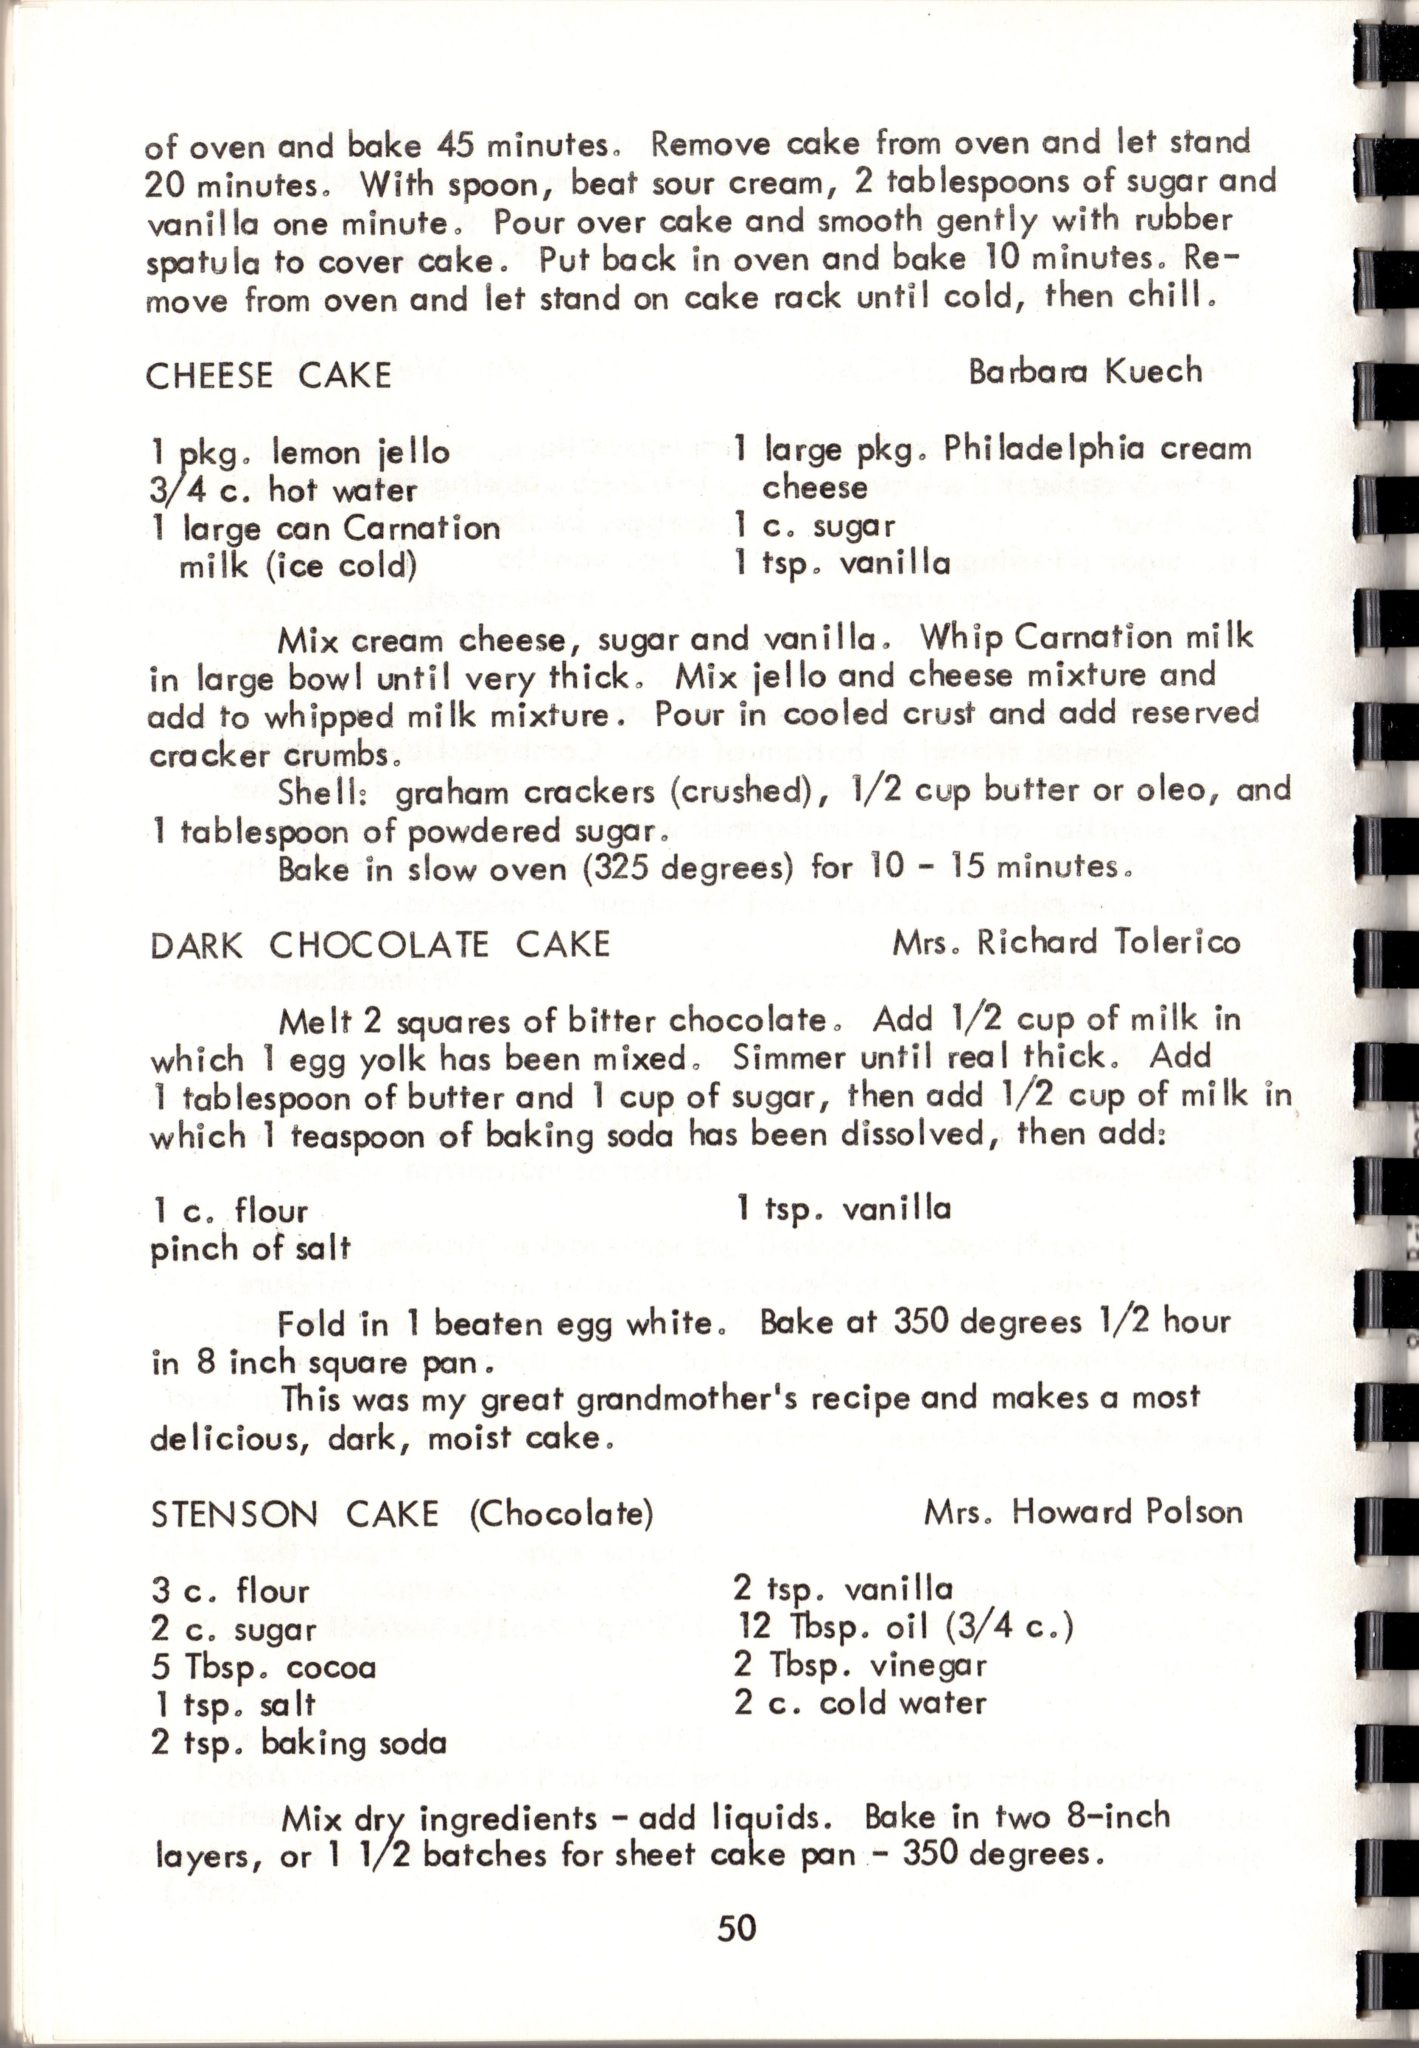 of oven and bake 45 minutes. Remove cake from oven and let stand
20 minutes. With spoon, beat sour cream, 2 tablespoons of sugar and
vanilla one minute. Pour over cake and smooth gently with rubber
spatula to cover cake. Put back in oven and bake 10 minutes. Re-
move from oven and let stand on cake rack until cold, then chill.
CHEESE CAKE Barbara Kuech
1 pkg. lemon jello
3/4 c. hot water
1 large can Carnation
milk (ice cold)
1 large pkg. Philadelphia cream
cheese
1 c. sugar
1 tsp. vanilla
Mix cream cheese, sugar and vanilla. Whip Carnation milk
in large bowl until very thick. Mix jello and cheese mixture and
add to whipped milk mixture. Pour in cooled crust and add reserved
cracker crumbs.
Shell: graham crackers (crushed), 1/2 cup butter or oleo, and
1 tablespoon of powdered sugar.
Bake in slow oven (325 degrees) for 10 - 15 minutes.
DARK CHOCOLATE CAKE Mrs. Richard Tolerico
Melt 2 squares of bitter chocolate. Add 1/2 cup of milk in
which 1 egg yolk has been mixed. Simmer until real thick. Add
1 tablespoon of butter and 1 cup of sugar, then add 1/2 cup of milk in
which 1 teaspoon of baking soda has been dissolved, then add:
1 c. flour
pinch of salt
1 tsp. vanilla
Fold in 1 beaten egg white. Bake at 350 degrees 1/2 hour
in 8 inch square pan.
This was my great grandmother's recipe and makes a most
delicious, dark, moist cake.
STENSON CAKE (Chocolate) Mrs. Howard Polson
3 c. flour
2 c. sugar
5 Tbsp. cocoa
1 tsp. salt
2 tsp. baking soda
2 tsp. vanilla
12 Tbsp. oil (3/4 c.)
2 Tbsp. vinegar
2 c. cold water
Mix dry ingredients - add liquids. Bake in two 8-inch
layers, or 1 1/2 batches for sheet cake pan - 350 degrees.
50